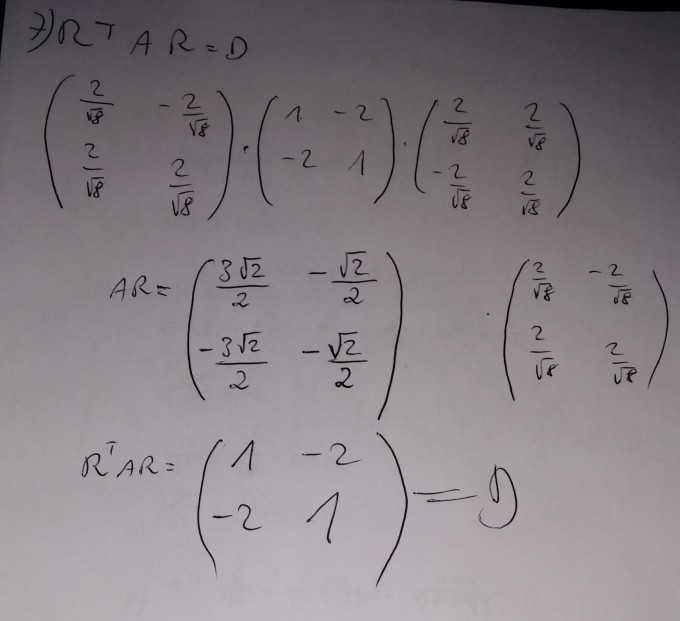 7) R^T A R = D
(2/√8 -2/√8; 2/√8 2/√8) · (1 -2; -2 1) · (2/√8 2/√8; -2/√8 2/√8)
AR = (3√2/2 -√2/2; -3√2/2 -√2/2) · (2/√8 -2/√8; 2/√8 2/√8)
R^T AR = (1 -2; -2 1) = D